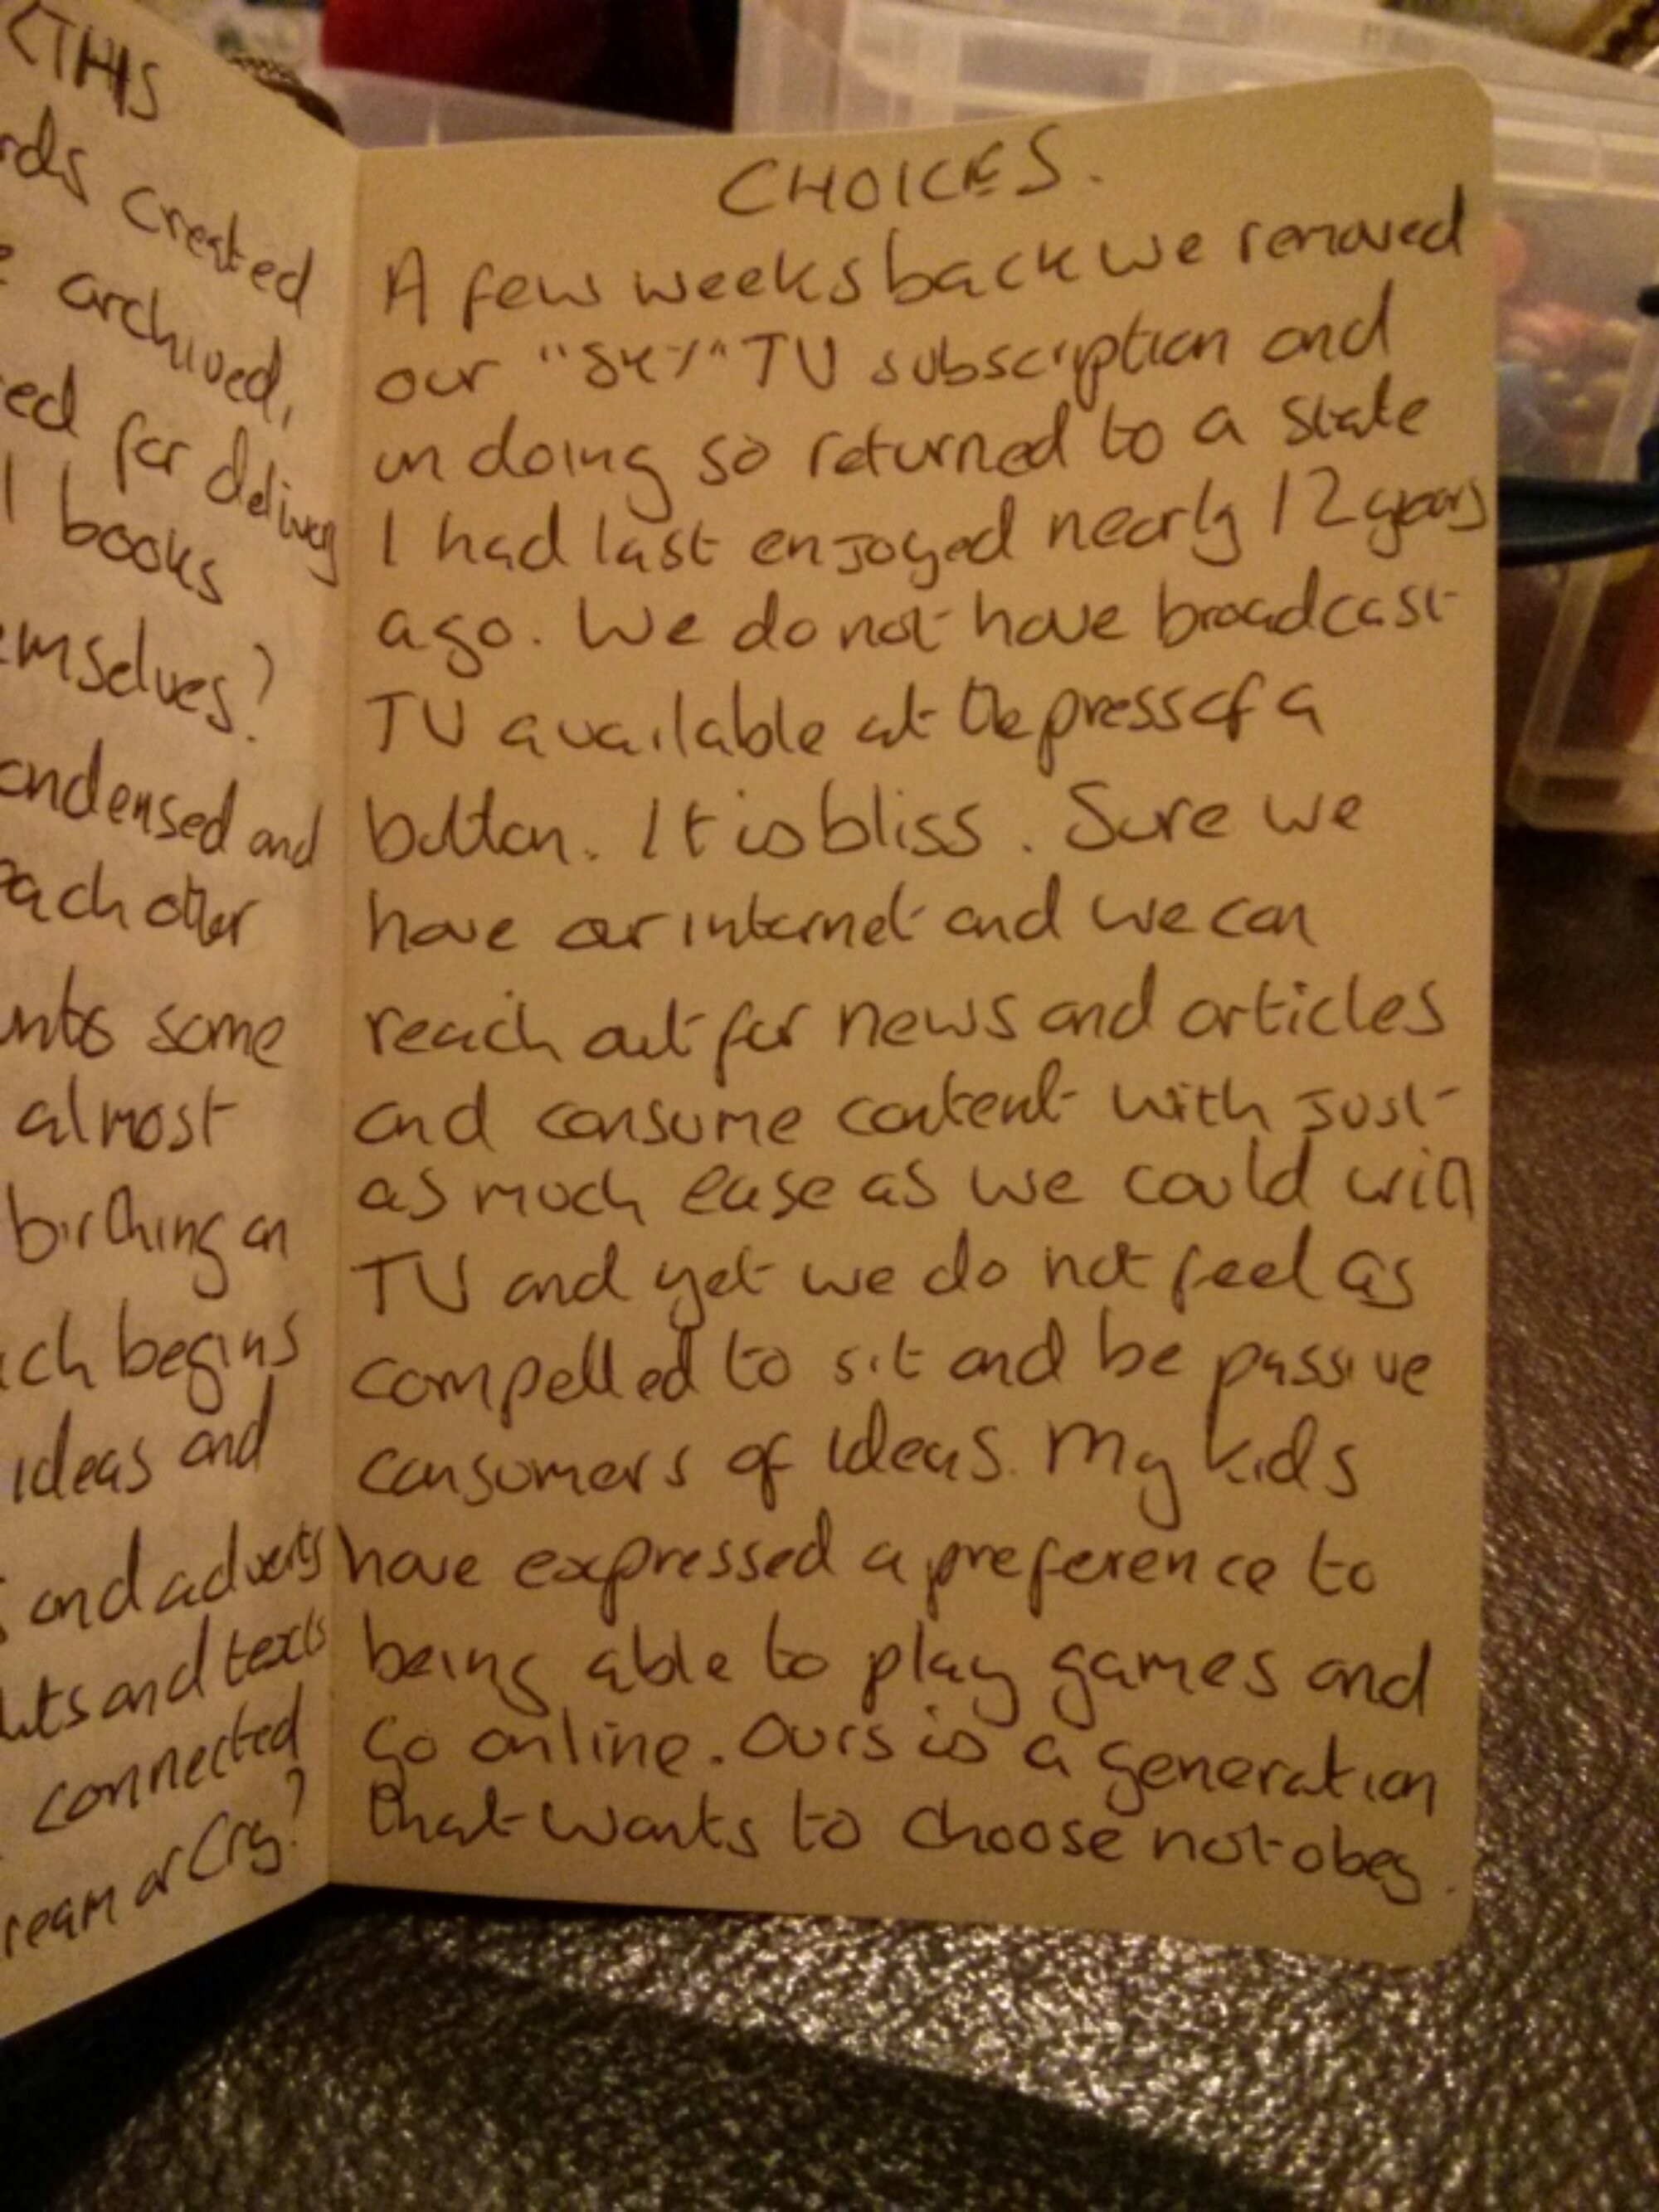 THIS
created
archived,
for delivery
books
emselves?
ondensed and
each other
some
almost
birthing an
begins
ideas and
and adverts
and texts
connected
or Cry?
CHOICES.
A few weeks back we removed
our "SKY" TV subscription and
in doing so returned to a state
I had last enjoyed nearly 12 years
ago. We do not have broadcast
TV available at the press of a
button. It is bliss. Sure we
have our internet and we can
reach out for news and articles
and consume content with just
as much ease as we could with
TV and yet we do not feel as
compelled to sit and be passive
consumers of ideas. My kids
have expressed a preference to
being able to play games and
go online. Ours is a generation
that wants to choose not obey.